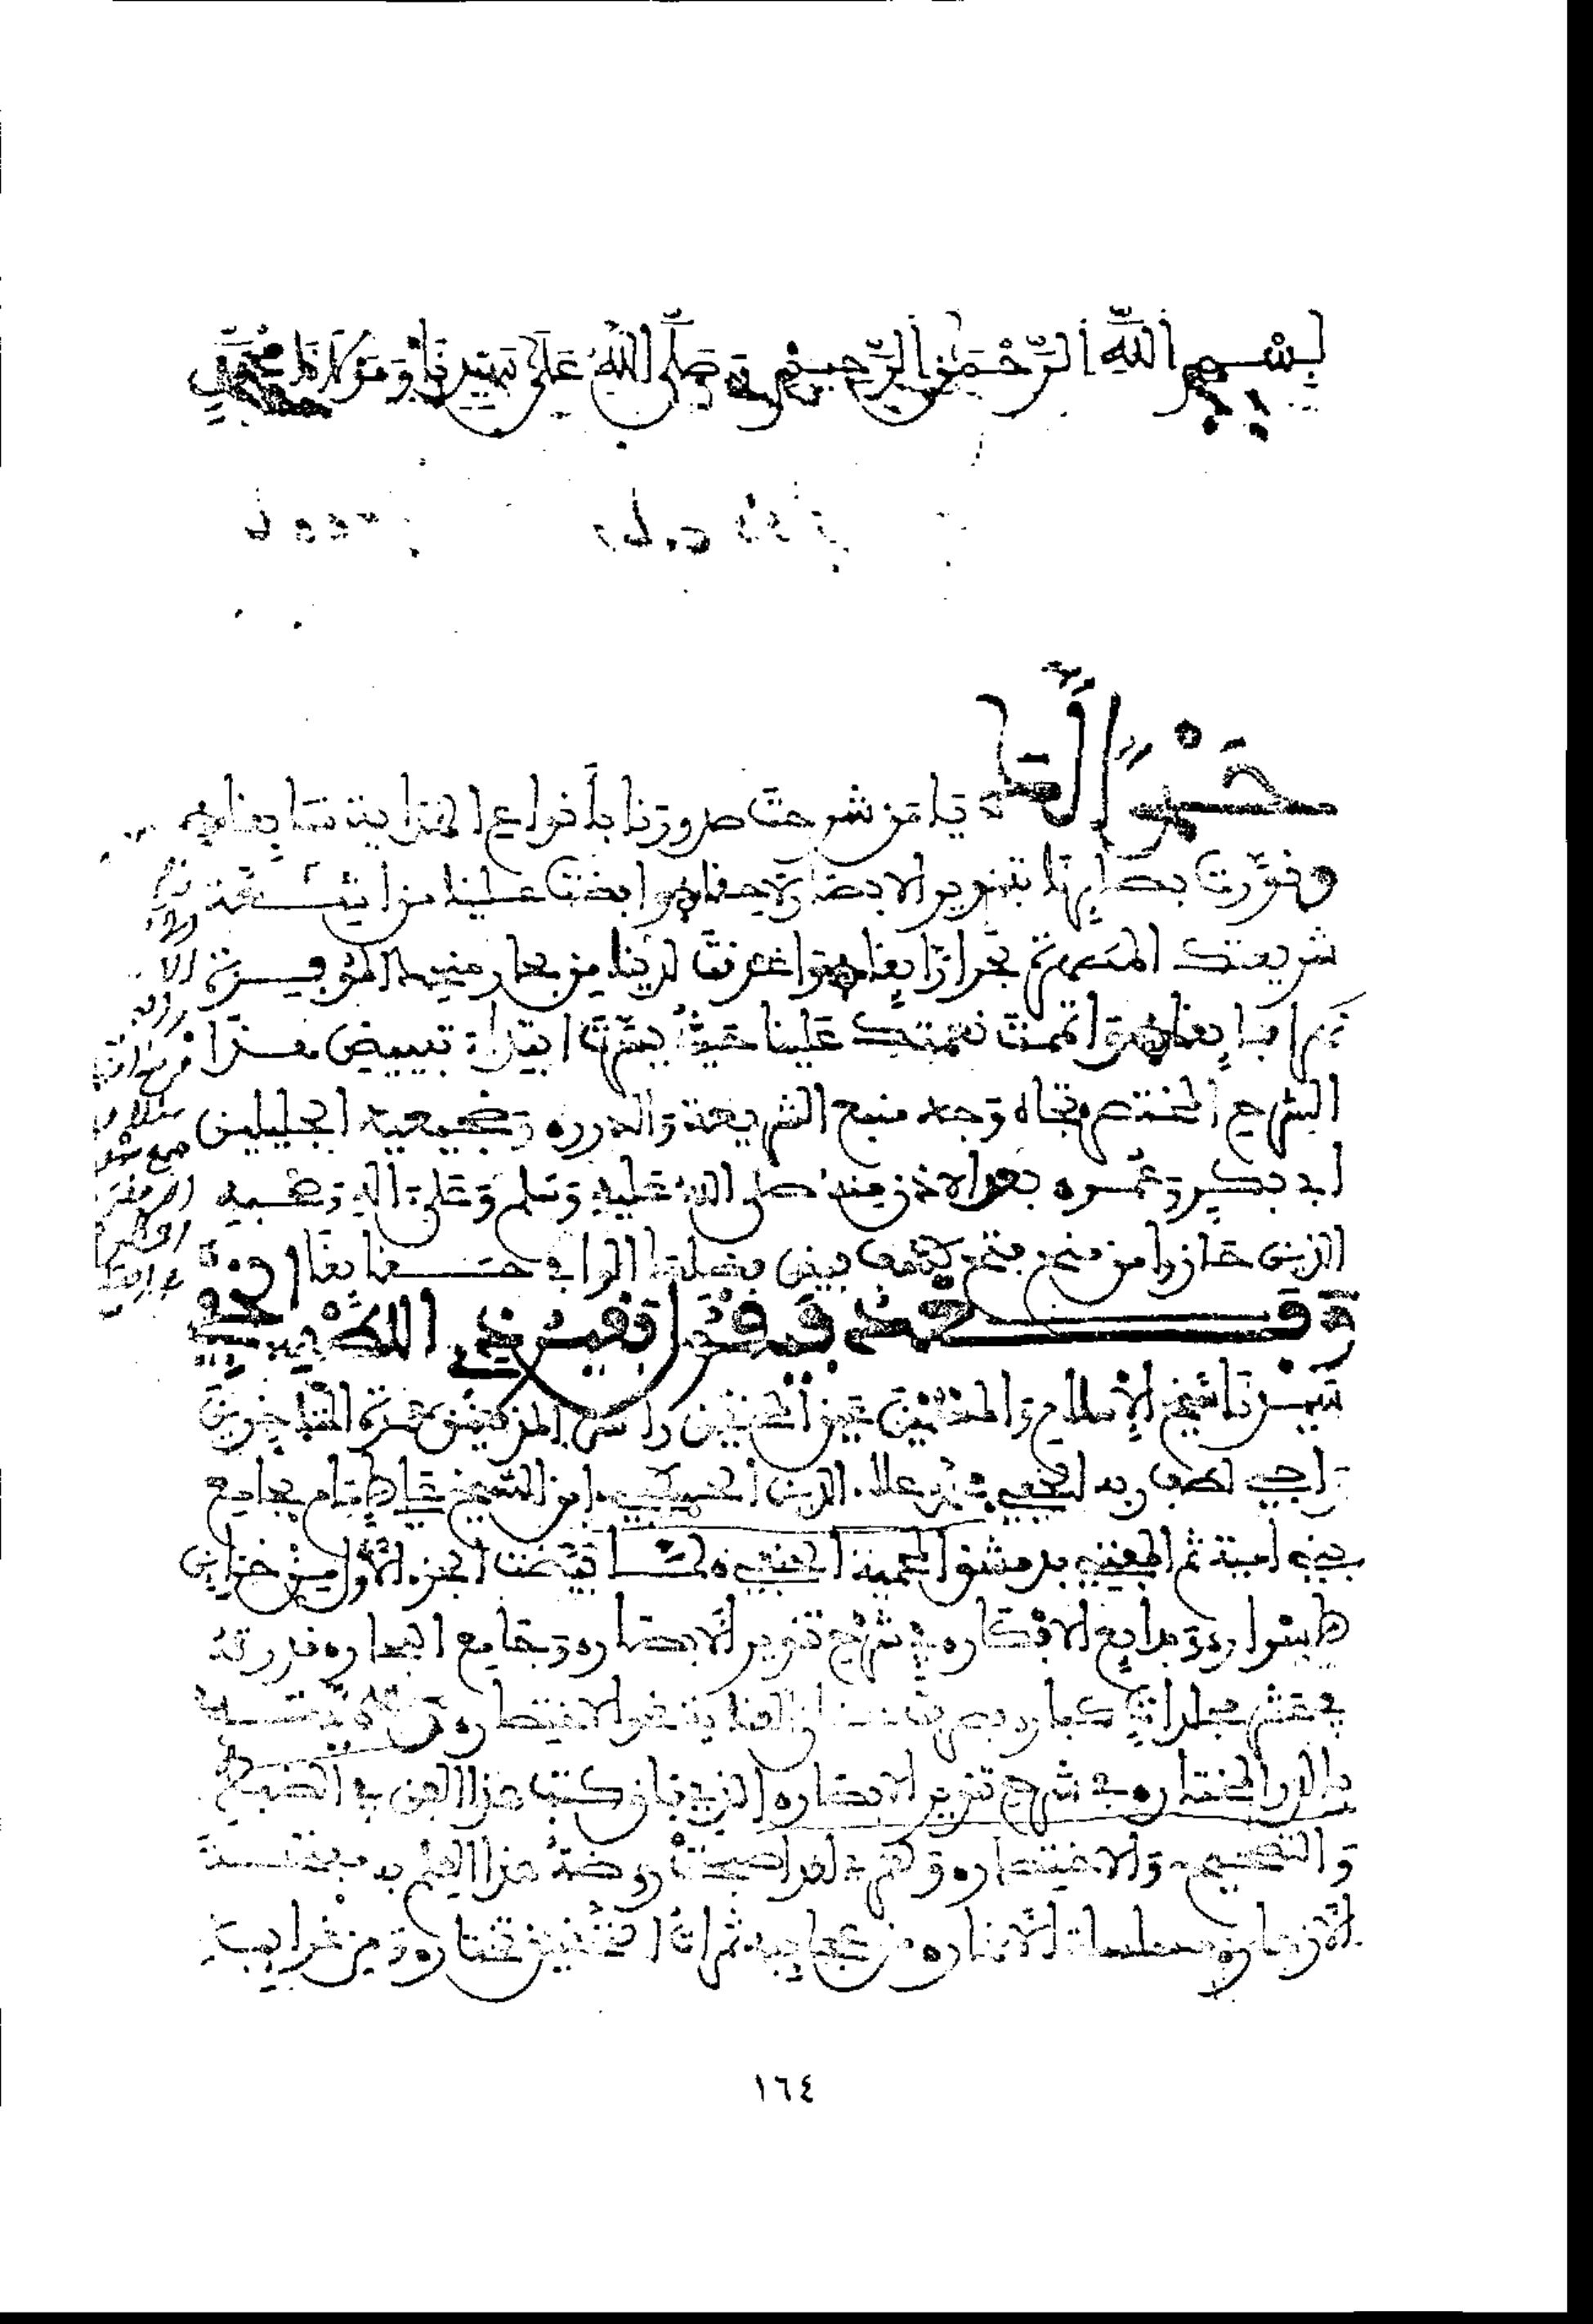 بِسْمِ اللَّهِ الرَّحْمَٰنِ الرَّحِيمِ وَصَلَّى اللَّهُ عَلَى سَيِّدِنَا وَمَوْلَانَا مُحَمَّدٍ
حَمْدًا لَكَ يا من شرحت صدورنا بأنواع الهداية سابقا
ونوّرت بصايرنا بتنوير الابصار لاحقا وافضت علينا من اشعة
شريعتك المطهرة بحرا رايقا واغدقت لدينا من بحار منحك الموفرة
نهرا فايقا واتممت نعمتك علينا حيث يسّرت ابتداء تبييض هذا
الشرح المختصر تجاه وجه منبع الشريعة والدرر وضجيعيه الجليلين
ابي بكر وعمر بعد الاذن منه صلى الله عليه وسلم وعلى آله وصحبه
الذين حازوا من منح فتح كشف فيض فضلك الوافي حقايقا
وَبَعْدُ فيقول فقير ذي اللطف الخفي
سيدنا شيخ الإسلام والمحدثين المدققين المتأخرين
راجي لطف ربه الخفي محمد علاء الدين الحصكفي ابن الشيخ علي الإمام بجامع
بني أمية ثم المفتي بدمشق المحمية الحنفي لما بيّضت الجزء الأول من خزاين
الاسرار وبدايع الافكار في شرح تنوير الابصار وجامع البحار قدرته
في عشر مجلدات كبار فصرفت عنان العناية نحو الاختصار وسميته
بالدر المختار في شرح تنوير الابصار الذي فاق كتب هذا الفن في الضبط
والتصحيح والاختصار ولعمري لقد اضحت روضة هذا العلم به مفتحة
الأزهار مسلسلة الأنهار من عجايبه ثمرات التحقيق تختار ومن غرايبه
١٦٤